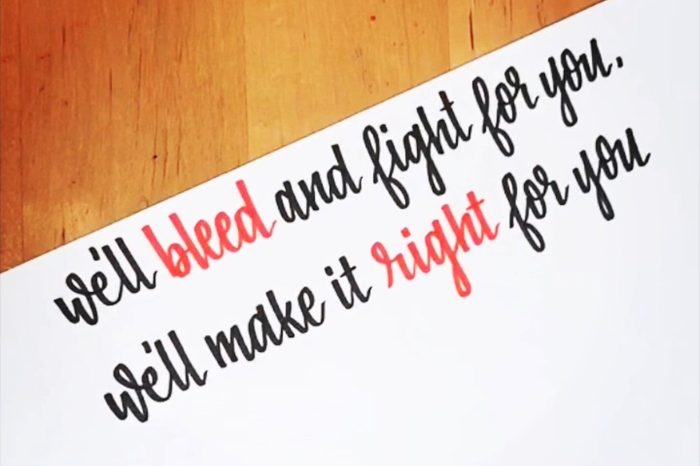 we'll bleed and fight for you.
we'll make it right for you